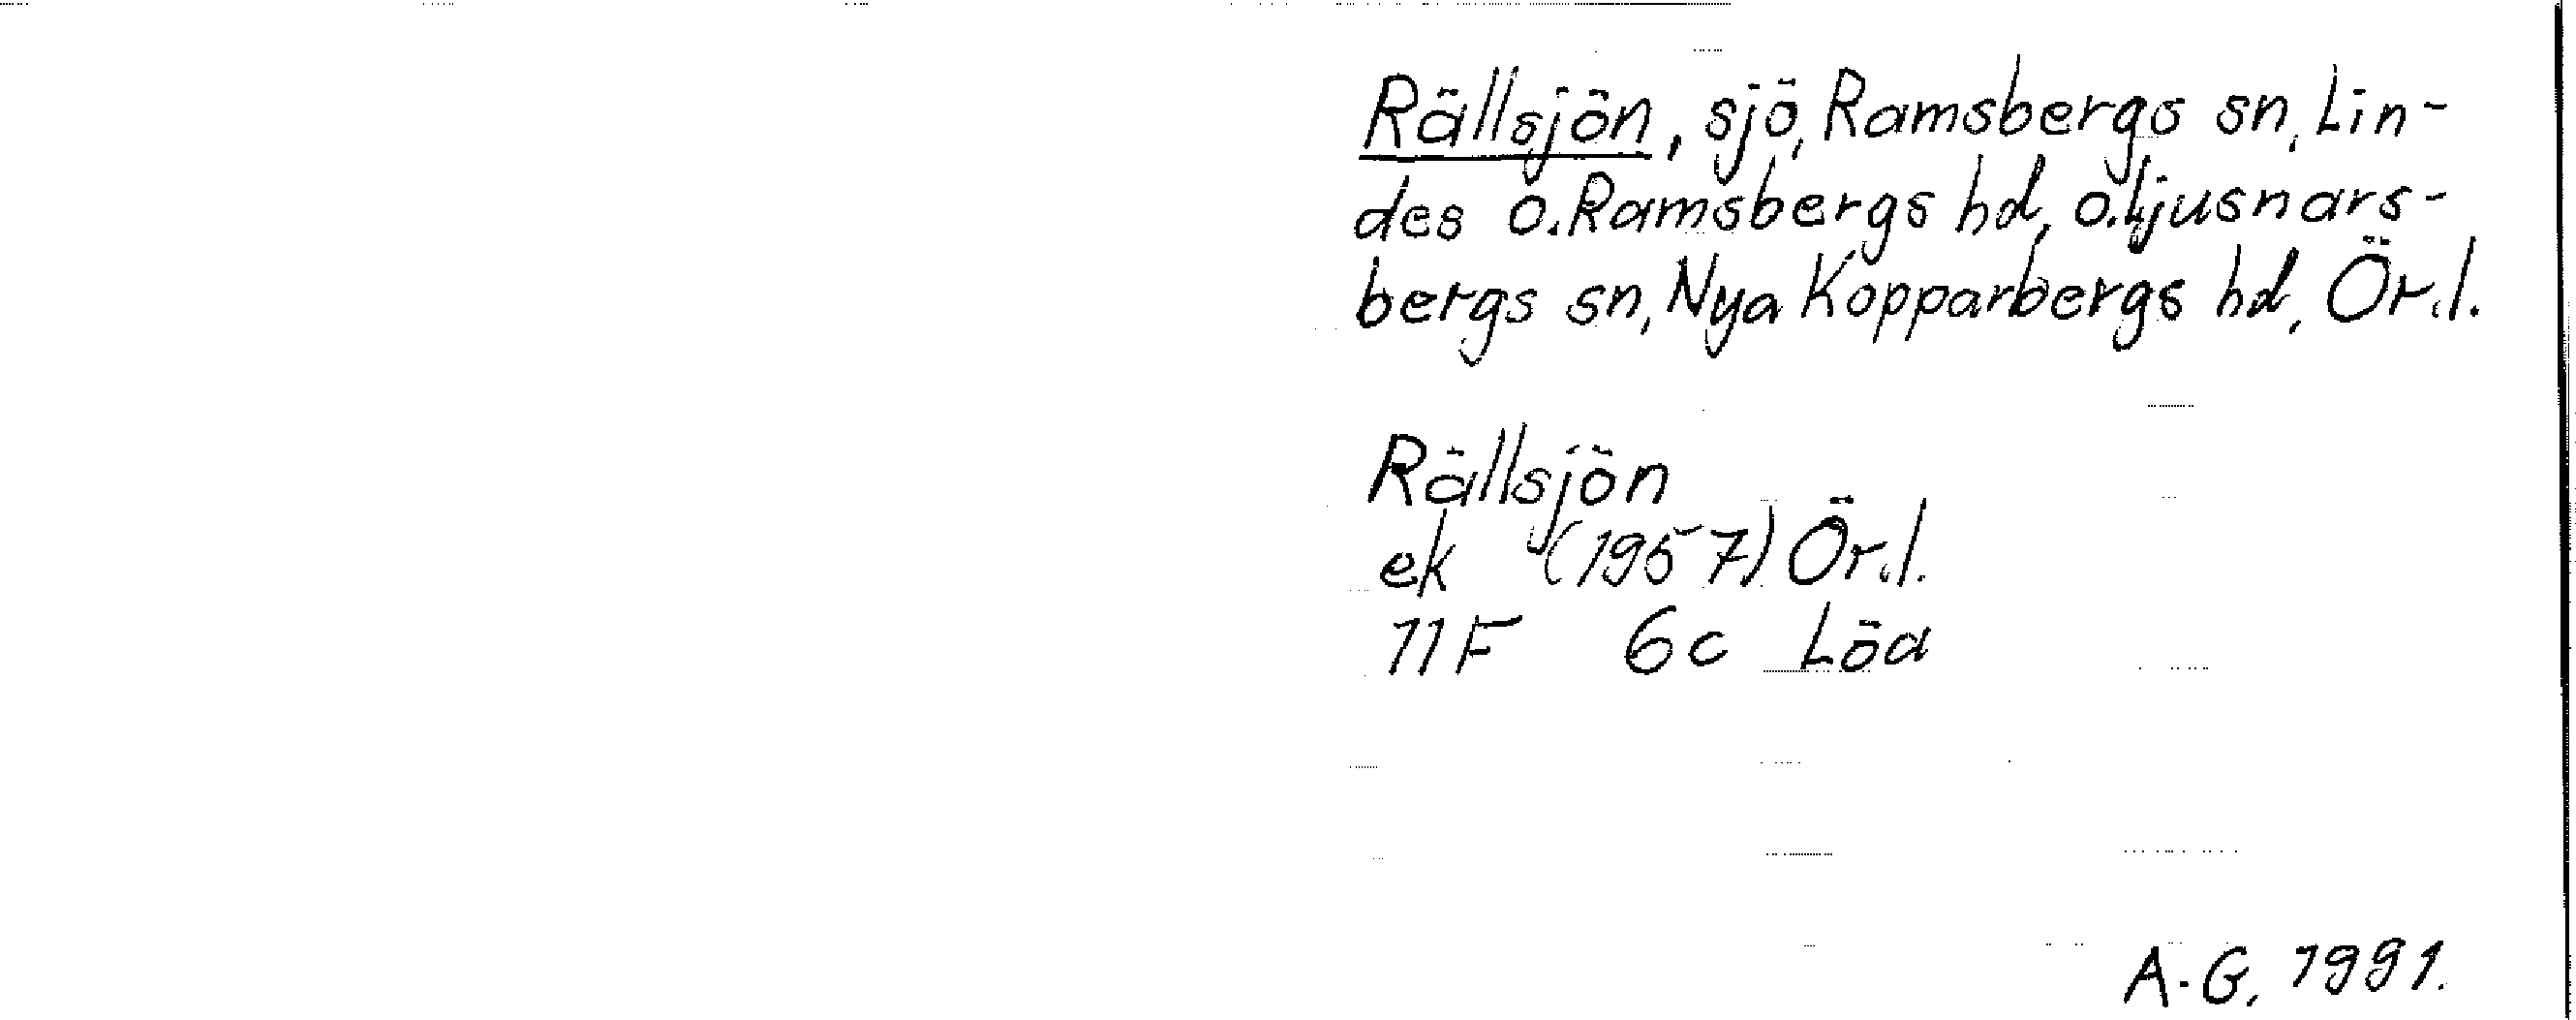 Rällsjön, sjö, Ramsbergs sn, Lin-
des o. Ramsbergs hd, o. Ljusnars-
bergs sn, Nya Kopparbergs hd, Ör.l.
Rällsjön
ek (1957) Ör.l.
11F 6c Löa
A-G. 1991.